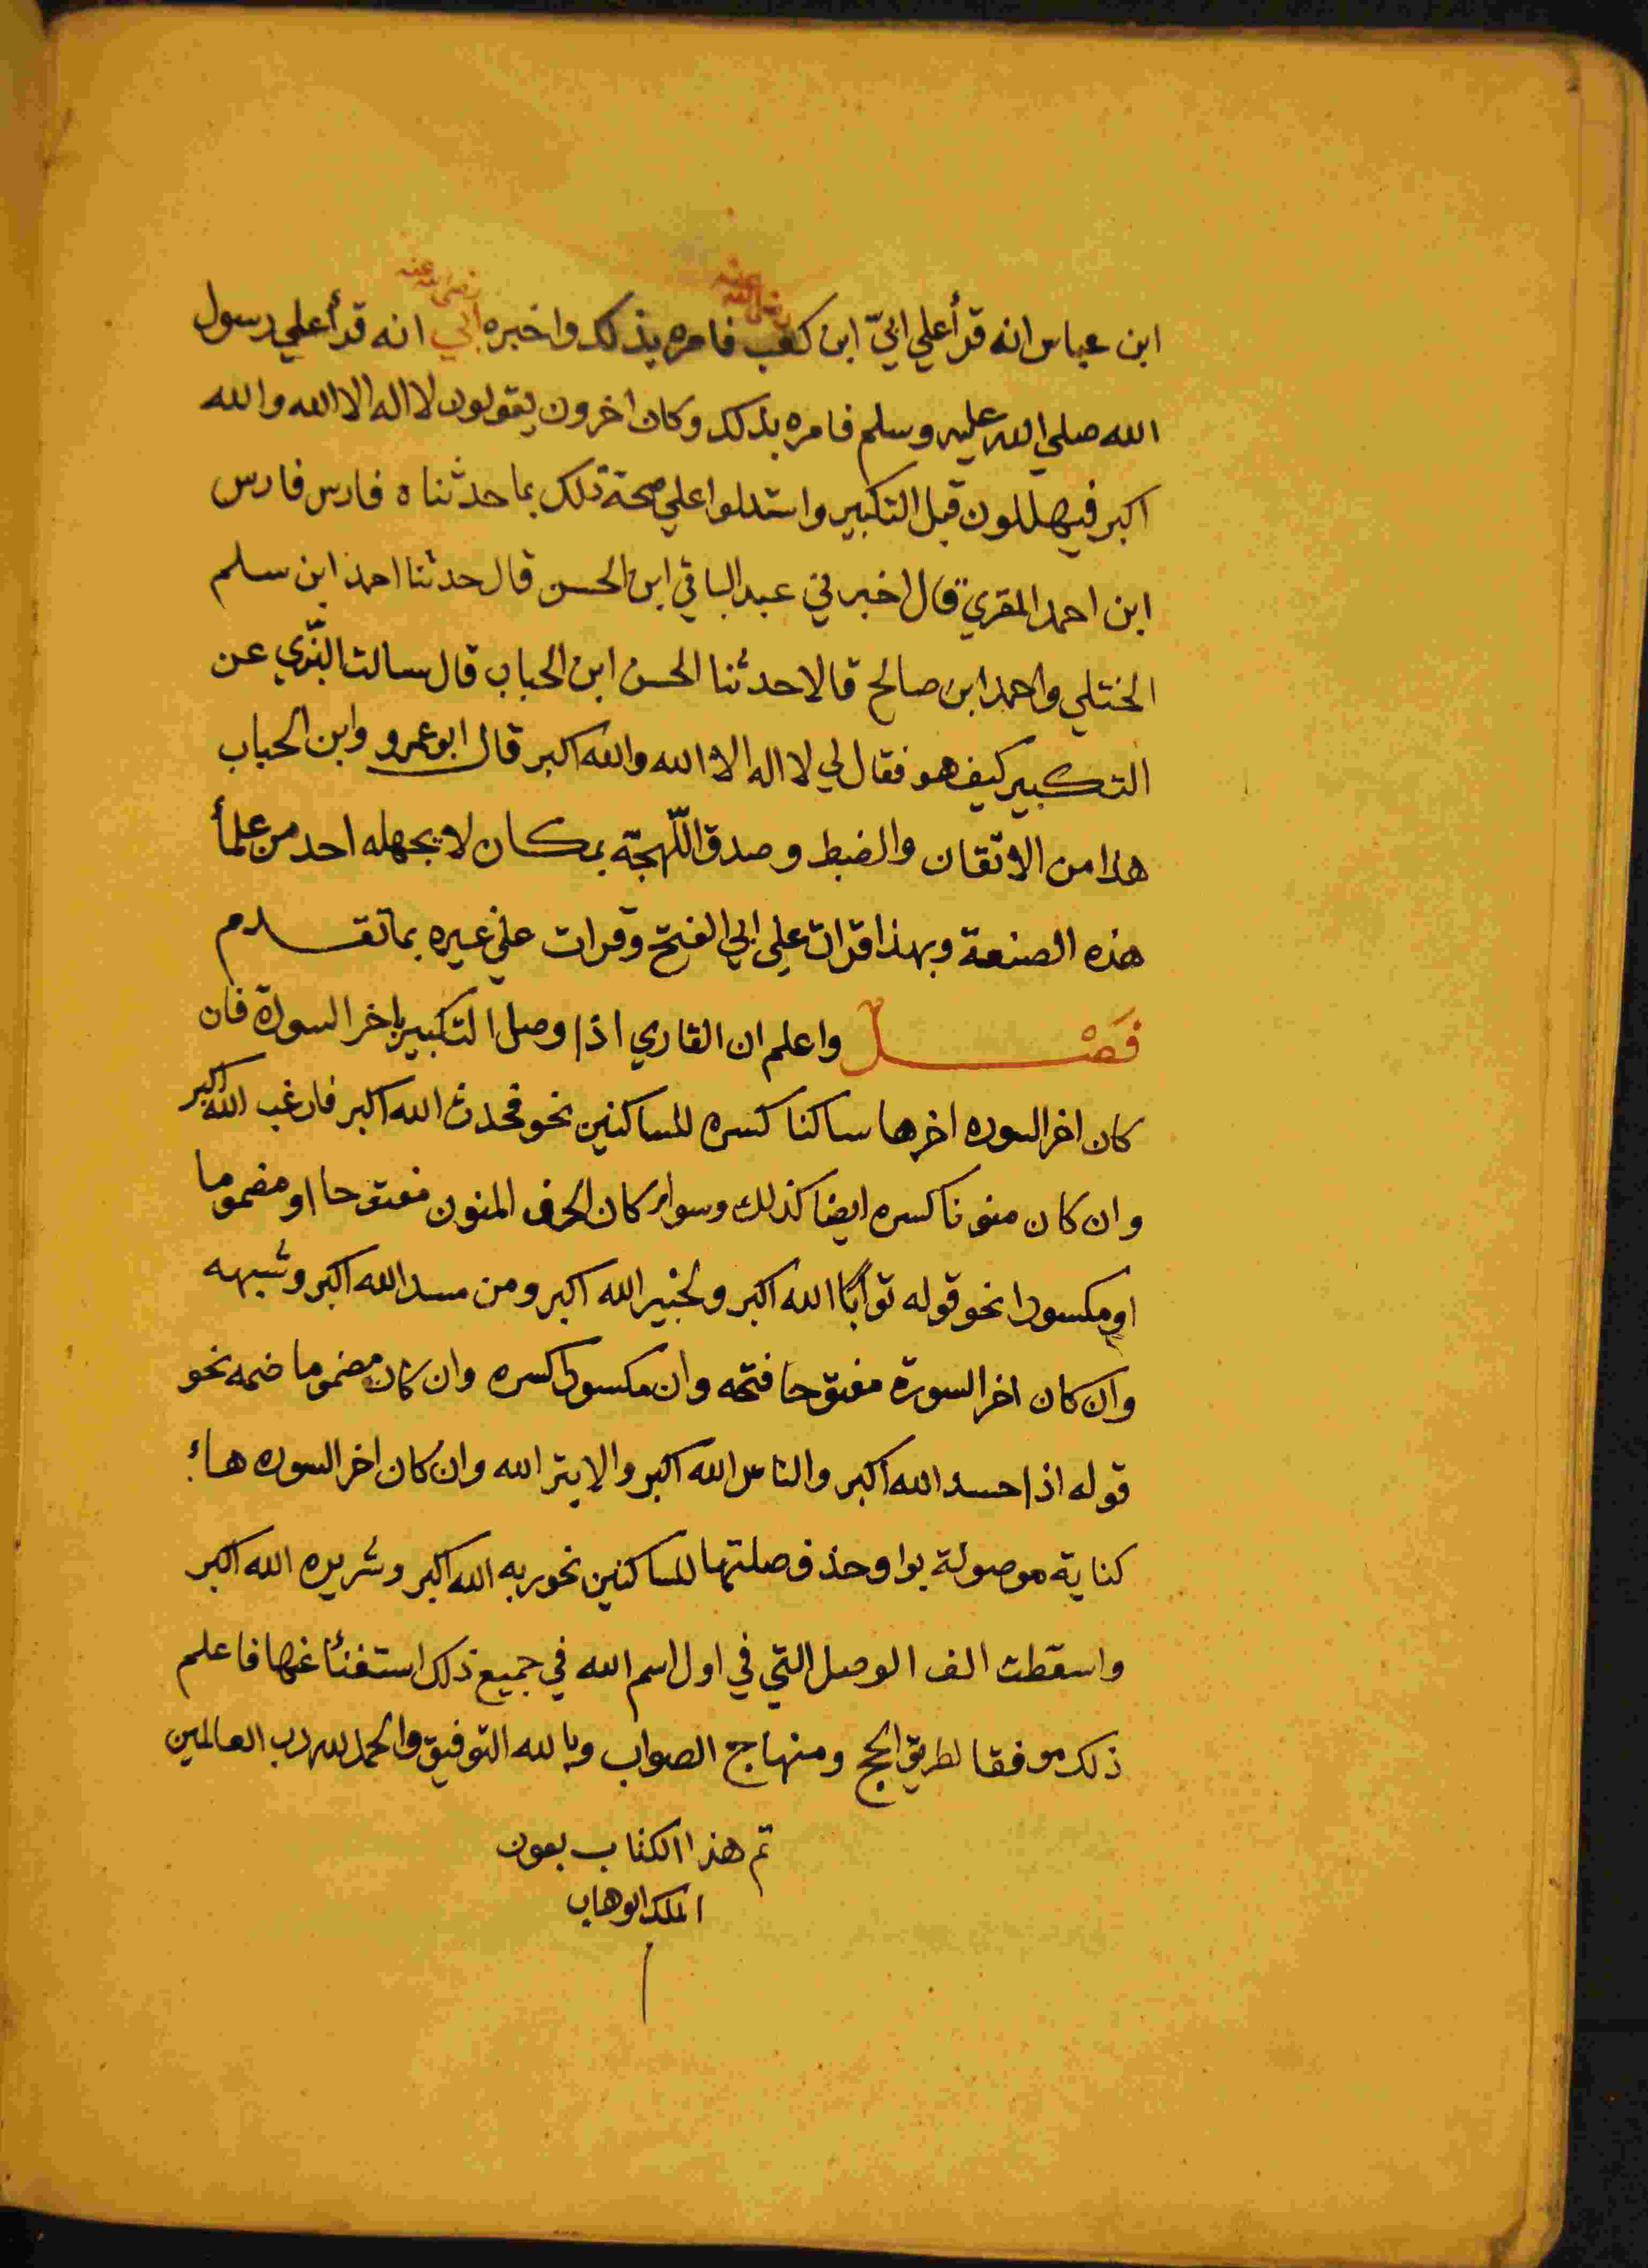 ابن عباس انه قرأ علي ابيّ ابن كعب رضي الله عنه فامره بذلك واخبره ابي رضي الله عنه انه قرأ علي رسول
الله صلي الله عليه وسلم فامره بذلك وكان اخرون يقولون لا اله الا الله والله
اكبر فيهللون قبل التكبير واستدلوا علي صحة ذلك بما حدثناه فارس فارس
ابن احمد المقري قال اخبرني عبد الباقي ابن الحسن قال حدثنا احمد ابن سلم
الختلي واحمد ابن صالح قالا حدثنا الحسن ابن الحباب قال سالت البّزي عن
التكبير كيف هو فقال لي لا اله الا الله والله اكبر قال ابو عمرو وابن الحباب
هذا من الاتقان والضبط وصدق اللّهجّة بمكان لا يجهله احد من علمأ
هذه الصنعة وبهذا قرات علي ابي الفتح وقرات علي غيره بما تقدم
فَصْل واعلم ان القاري اذا وصل التكبير باخر السورة فان
كان اخر السوره اخرها ساكنا كسره للساكنين نحو فحدث الله اكبر فارغب الله اكبر
وان كان منونا كسره ايضا كذلك وسواء كان الحرف المنون مفتوحا او مضموما
او مكسورا نحو قوله توابًا الله اكبر ولخبير الله اكبر ومن مسد الله اكبر وشبهه
وان كان اخر السورة مفتوحا فتحه وان مكسورا كسره وان كان مضموما ضمه نحو
قوله اذا حسد الله اكبر والناس الله اكبر والابتر الله وان كان اخر السوره هاءً
كناية موصولة بواو حذف صلتها للساكنين نحو ربه الله اكبر وشريره الله اكبر
واسقطت الف الوصل التي في اول اسم الله في جميع ذلك استغنأ عنها فاعلم
ذلك موفقا لطريق الحج ومنهاج الصواب وبالله التوفيق والحمد لله رب العالمين
تم هذا الكتاب بعون
الملك الوهاب